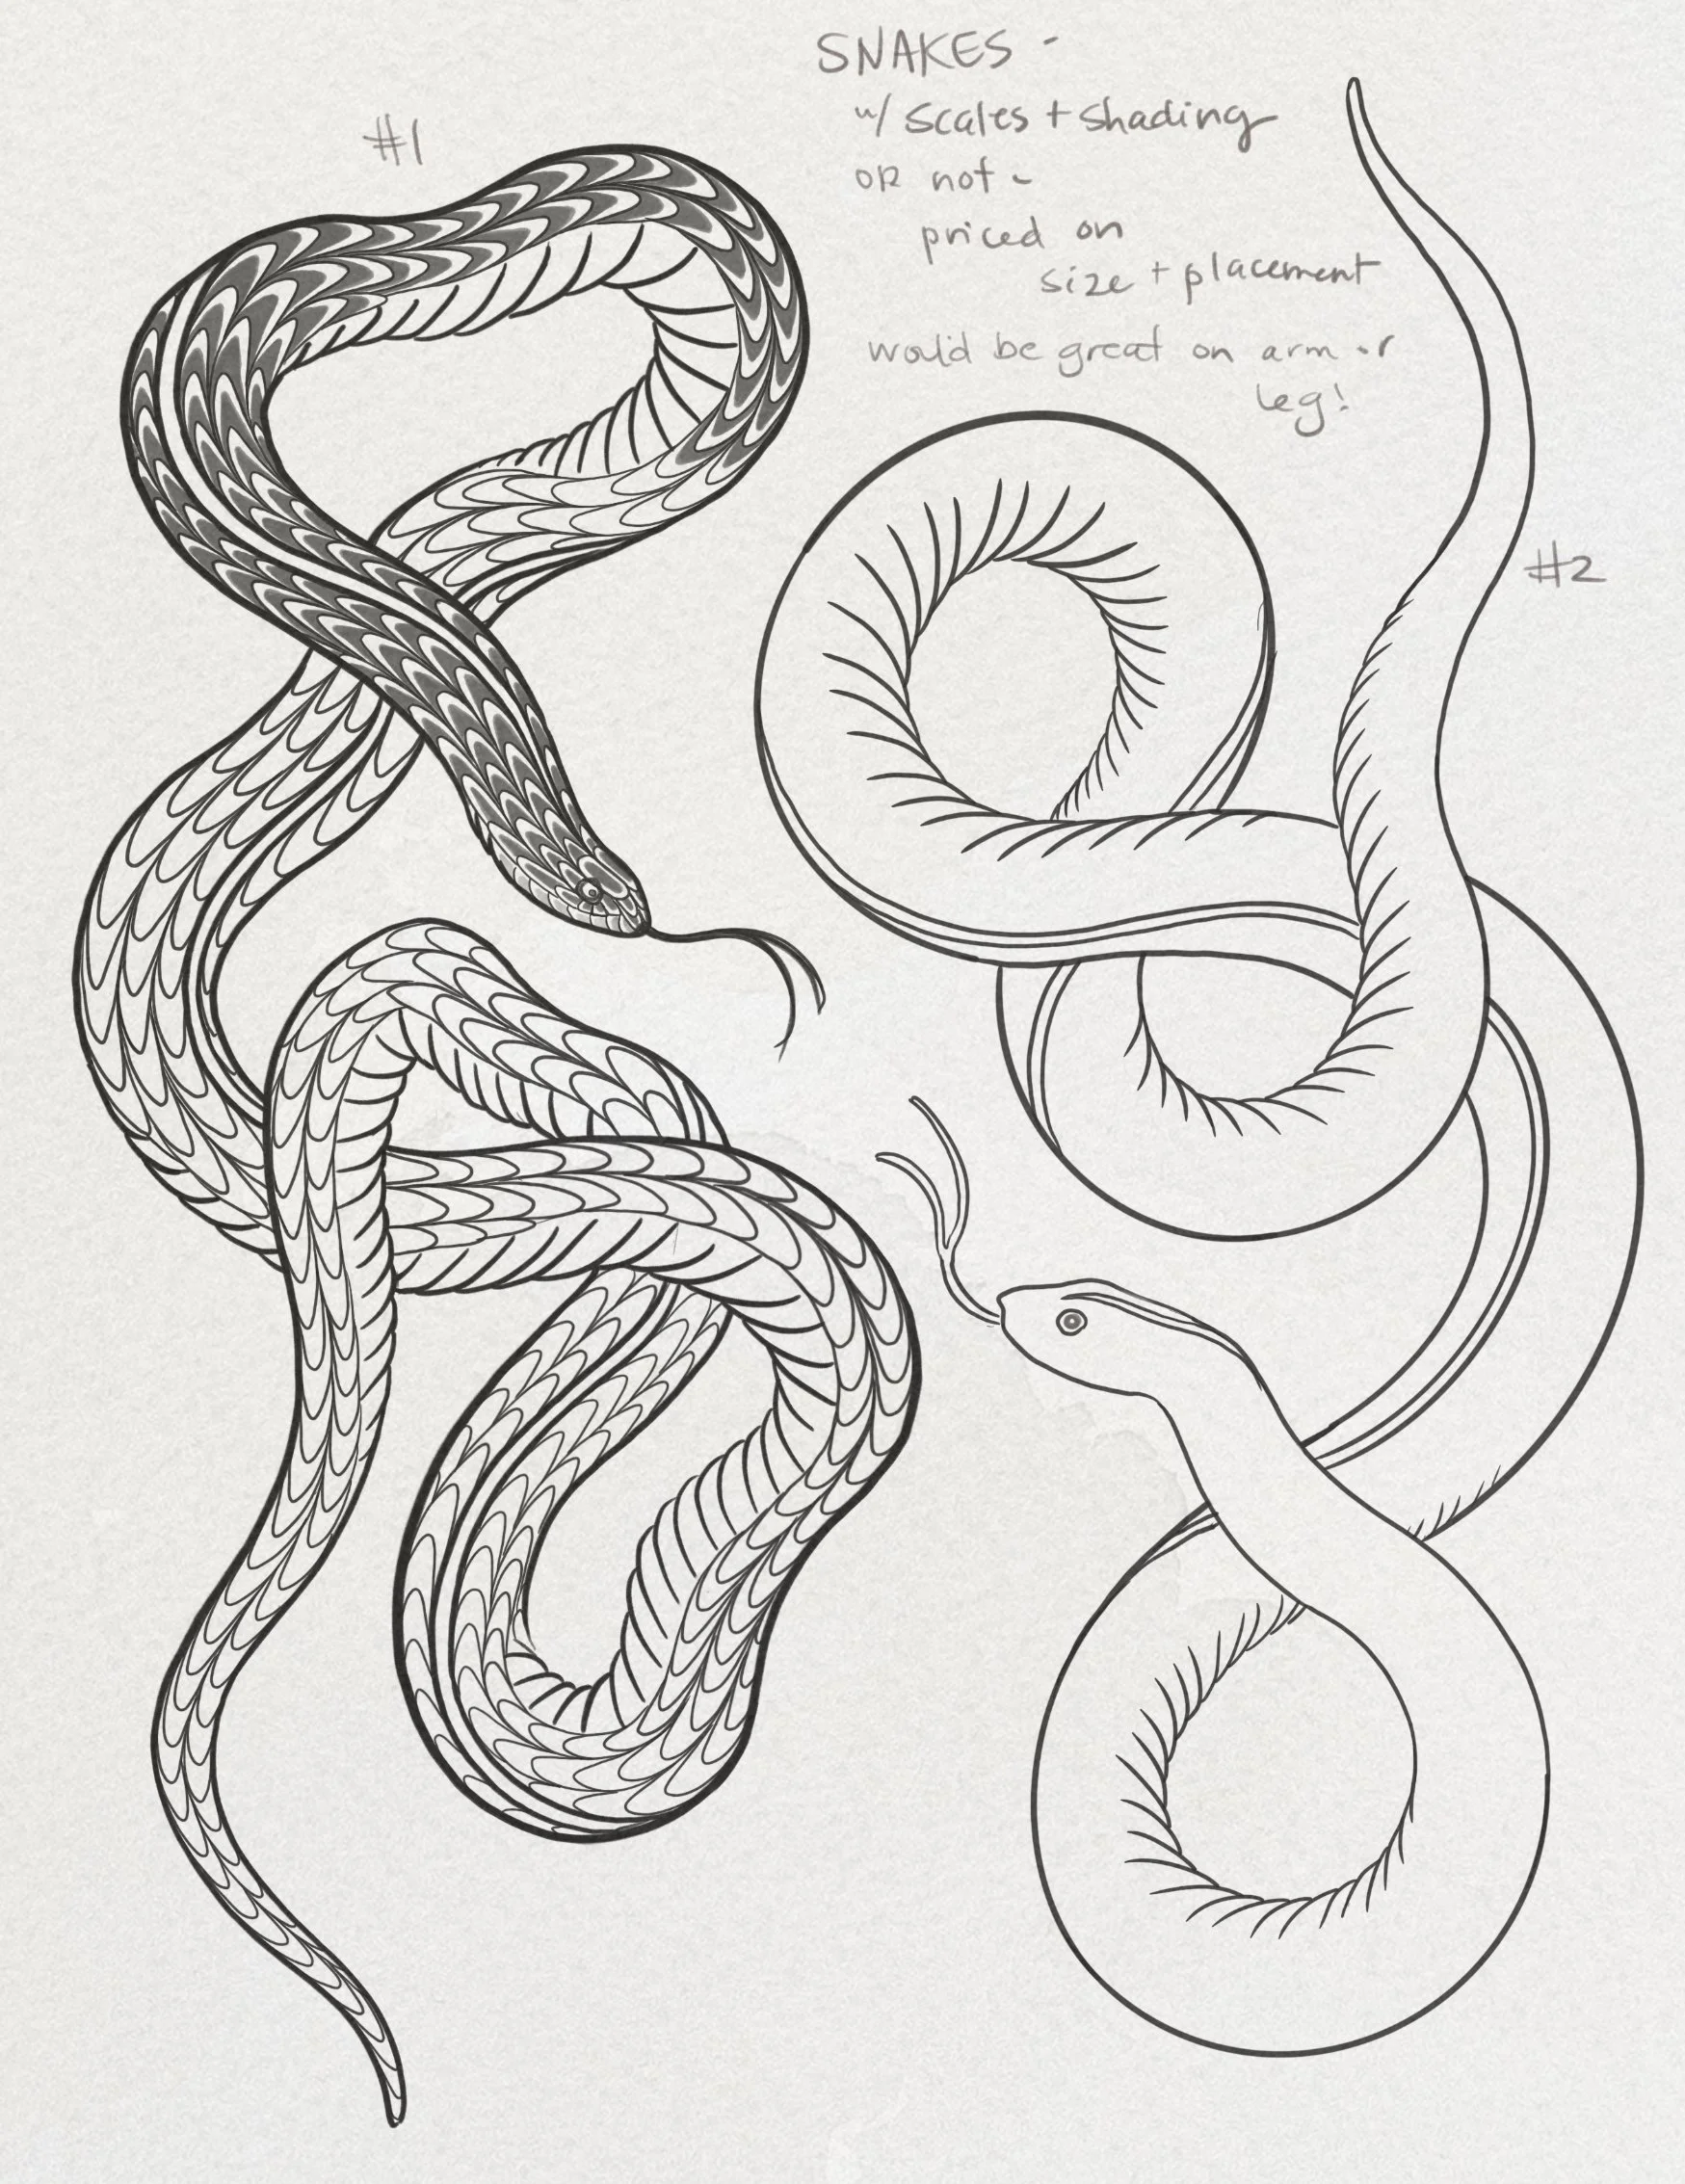 #1
SNAKES -
w/ scales + shading
OR not -
priced on
size + placement
would be great on arm or
leg!
#2